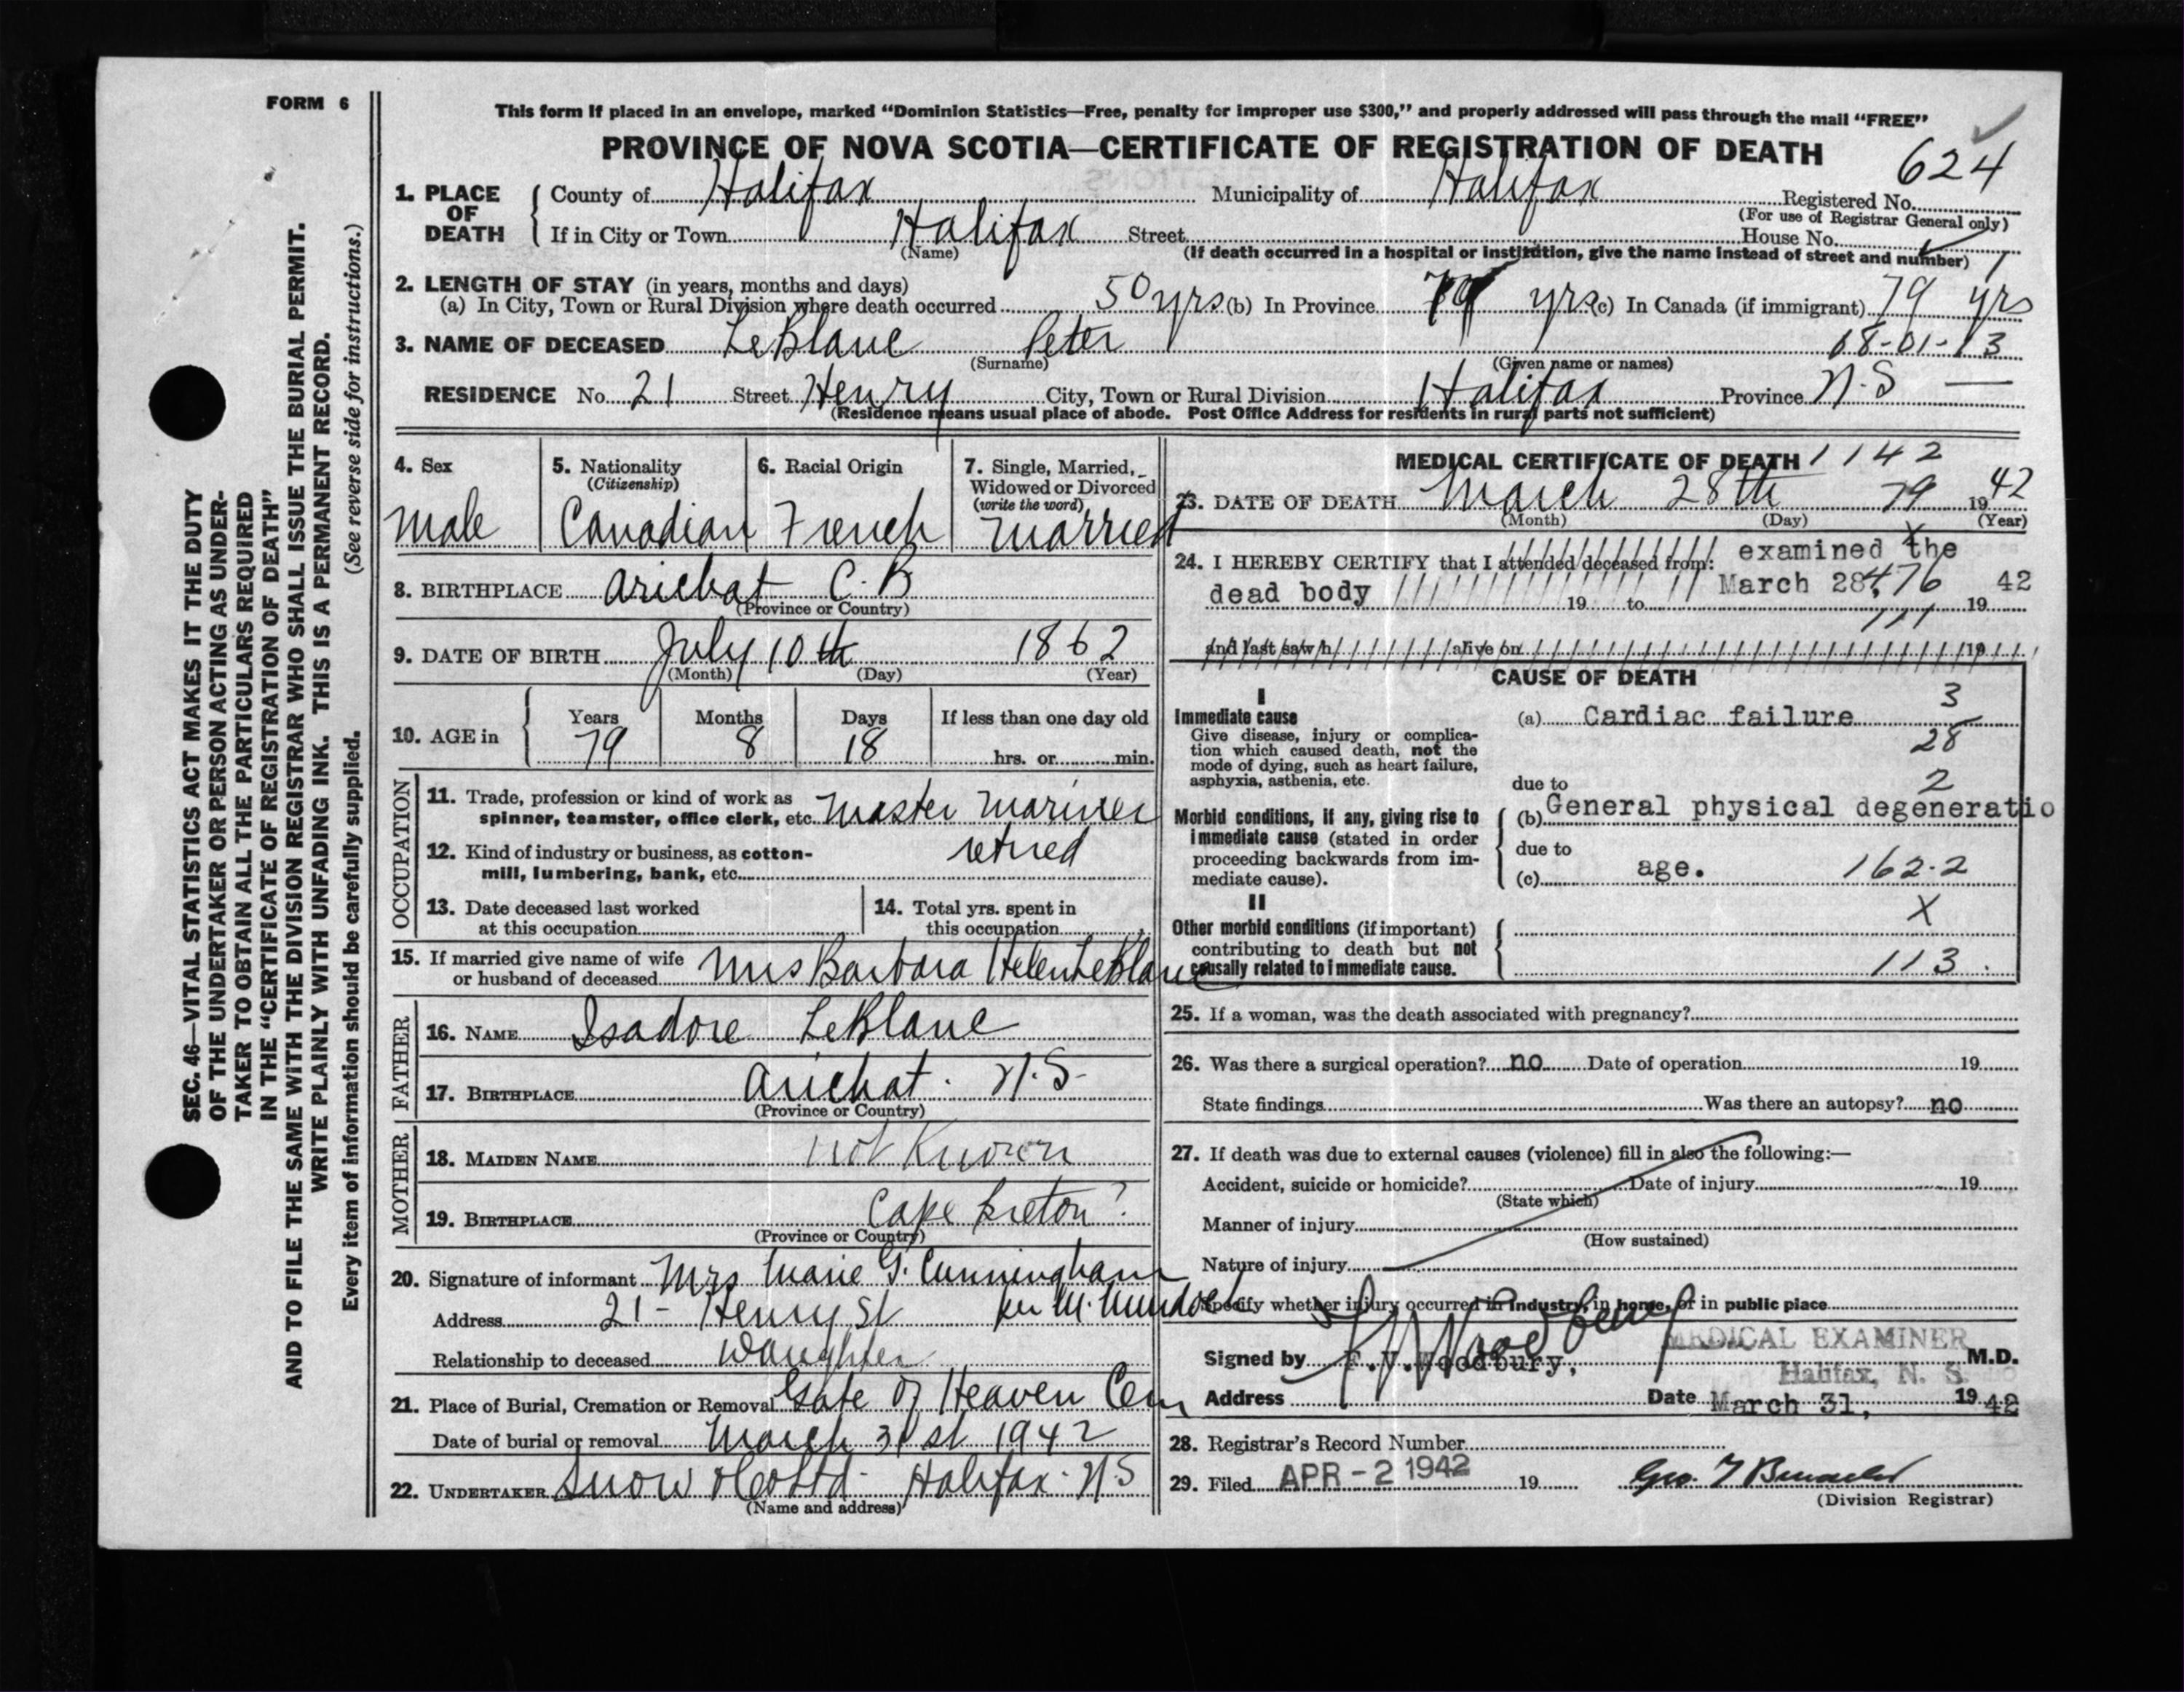 FORM 6
This form if placed in an envelope, marked "Dominion Statistics—Free, penalty for improper use $300," and properly addressed will pass through the mail "FREE"
PROVINCE OF NOVA SCOTIA—CERTIFICATE OF REGISTRATION OF DEATH
624
1. PLACE OF DEATH
County of Halifax Municipality of Halifax Registered No.
(For use of Registrar General only)
If in City or Town Halifax Street House No.
(Name) (If death occurred in a hospital or institution, give the name instead of street and number)
2. LENGTH OF STAY (in years, months and days)
(a) In City, Town or Rural Division where death occurred 50 yrs (b) In Province 79 yrs (c) In Canada (if immigrant) 79 yrs
3. NAME OF DECEASED LeBlanc Peter 18-01-13
(Surname) (Given name or names)
RESIDENCE No. 21 Street Henry City, Town or Rural Division Halifax Province N.S —
(Residence means usual place of abode. Post Office Address for residents in rural parts not sufficient)
4. Sex
male
5. Nationality
(Citizenship)
Canadian
6. Racial Origin
French
7. Single, Married, Widowed or Divorced
(write the word)
married
8. BIRTHPLACE Arichat C.B
(Province or Country)
9. DATE OF BIRTH July 10th 1862
(Month) (Day) (Year)
10. AGE in Years Months Days If less than one day old
79 8 18 hrs. or min.
OCCUPATION
11. Trade, profession or kind of work as spinner, teamster, office clerk, etc. Master Mariner
12. Kind of industry or business, as cotton-mill, lumbering, bank, etc. retired
13. Date deceased last worked at this occupation
14. Total yrs. spent in this occupation
15. If married give name of wife or husband of deceased Mrs Barbara Helen LeBlanc
FATHER
16. NAME Isadore LeBlanc
17. BIRTHPLACE Arichat. N.S-
(Province or Country)
MOTHER
18. MAIDEN NAME not Known
19. BIRTHPLACE Cape Breton?
(Province or Country)
20. Signature of informant Mrs Marie G. Cunningham
per M.
Address 21- Henry St
Relationship to deceased Daughter
21. Place of Burial, Cremation or Removal Gate of Heaven Cem
Date of burial or removal March 31st 1942
22. UNDERTAKER Snow & Co Ltd- Halifax. N.S
(Name and address)
MEDICAL CERTIFICATE OF DEATH 1142
23. DATE OF DEATH March 28th 79 1942
(Month) (Day) (Year)
24. I HEREBY CERTIFY that I attended deceased from: examined the
dead body 19 to March 28, 476 19 42
111
and last saw h alive on 19
CAUSE OF DEATH
I
Immediate cause
Give disease, injury or complication which caused death, not the mode of dying, such as heart failure, asphyxia, asthenia, etc.
(a) Cardiac failure 3
28
due to 2
Morbid conditions, if any, giving rise to immediate cause (stated in order proceeding backwards from immediate cause).
(b) General physical degeneratio
due to
(c) age. 162.2
II
X
Other morbid conditions (if important) contributing to death but not causally related to immediate cause.
113.
25. If a woman, was the death associated with pregnancy?
26. Was there a surgical operation? no Date of operation 19
State findings Was there an autopsy? no
27. If death was due to external causes (violence) fill in also the following:—
Accident, suicide or homicide? Date of injury 19
(State which)
Manner of injury
(How sustained)
Nature of injury
Specify whether injury occurred in industry, in home, or in public place
Signed by F.V.Woodbury, M.D.
MEDICAL EXAMINER
Halifax, N. S.
Address Date March 31, 19 42
28. Registrar's Record Number
29. Filed APR - 2 1942 19
(Division Registrar)
SEC. 46—VITAL STATISTICS ACT MAKES IT THE DUTY
OF THE UNDERTAKER OR PERSON ACTING AS UNDER-
TAKER TO OBTAIN ALL THE PARTICULARS REQUIRED
IN THE "CERTIFICATE OF REGISTRATION OF DEATH"
AND TO FILE THE SAME WITH THE DIVISION REGISTRAR WHO SHALL ISSUE THE BURIAL PERMIT.
WRITE PLAINLY WITH UNFADING INK. THIS IS A PERMANENT RECORD.
Every item of information should be carefully supplied. (See reverse side for instructions.)